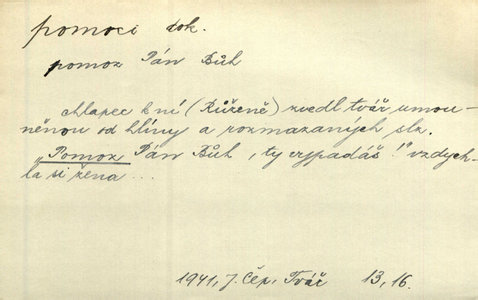 pomoci dok.
pomoz Pán Bůh
chlapec k ní (Růženě) zvedl tvář umou-
něnou od hlíny a rozmazaných slz.
„Pomoz Pán Bůh, ty vypadáš!" vzdych-
la si žena...
1941, J. Čep, Tvář 13, 16.